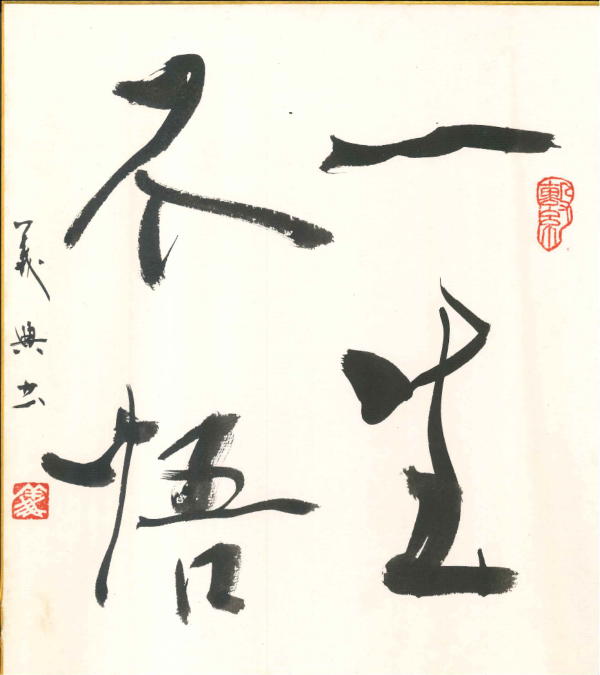 一生
不悟
義典书